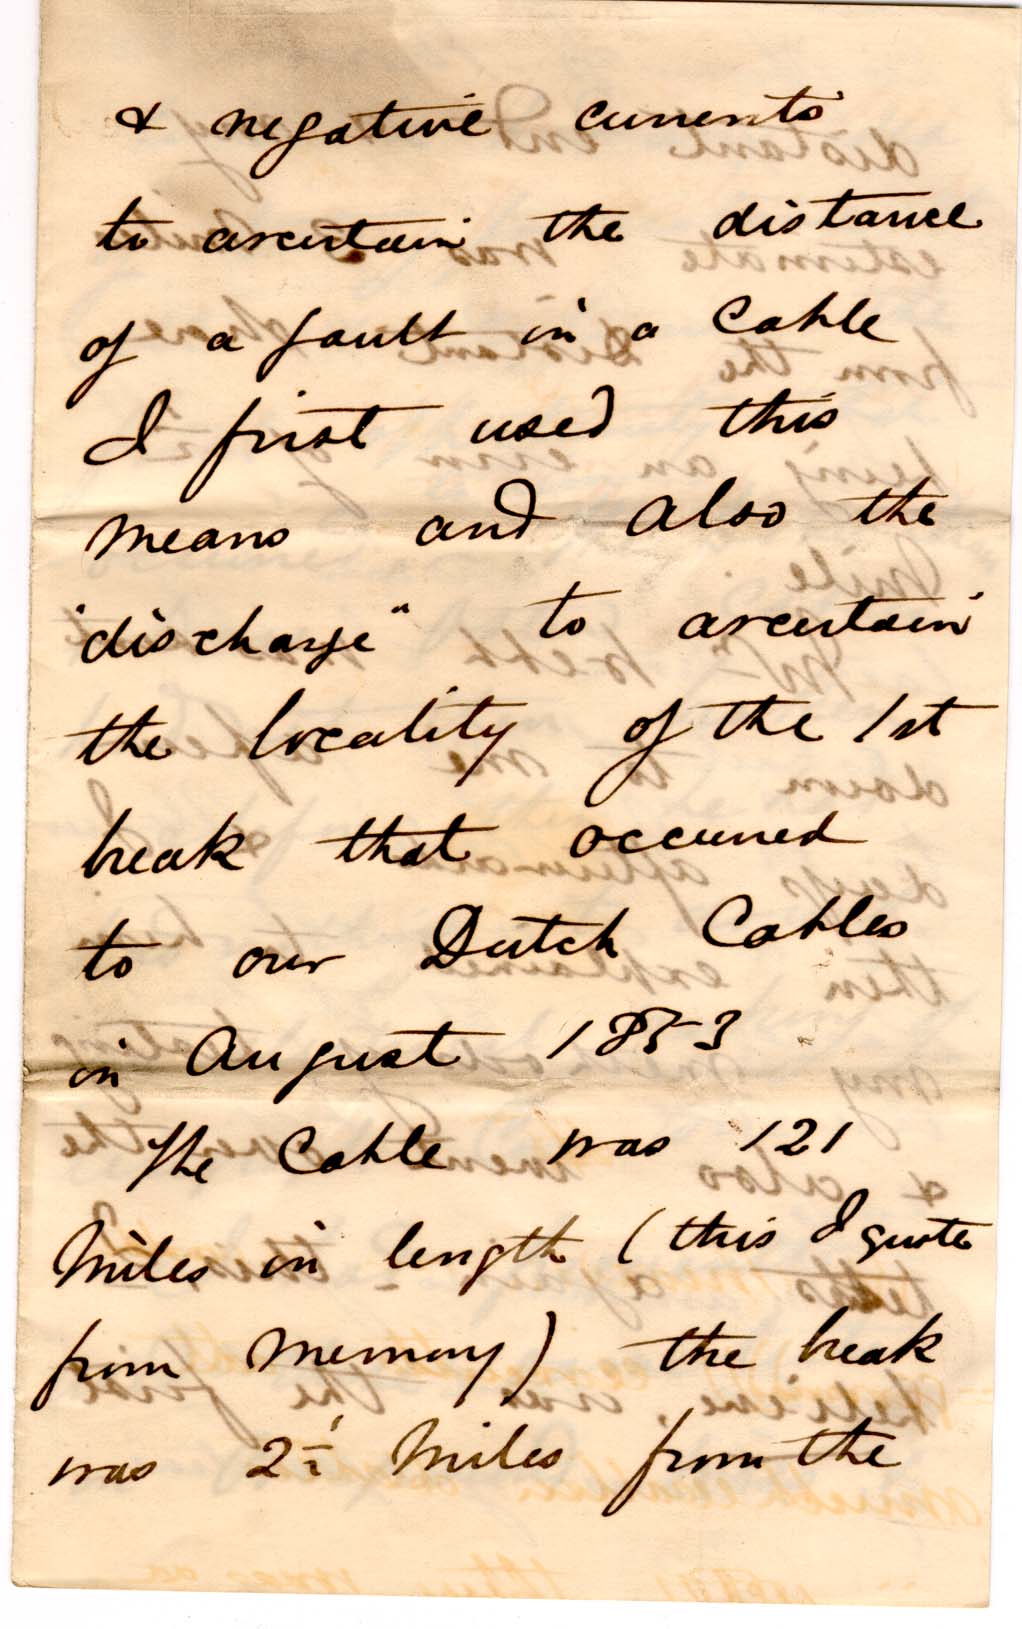 & negative currents
to ascertain the distance
of a fault in a Cable
I first used this
means and also the
"discharge" to ascertain
the locality of the 1st
break that occurred
to our Dutch Cables
in August 1853
The Cable was 121
Miles in length (this I quote
from Memory) the break
was 2½ Miles from the